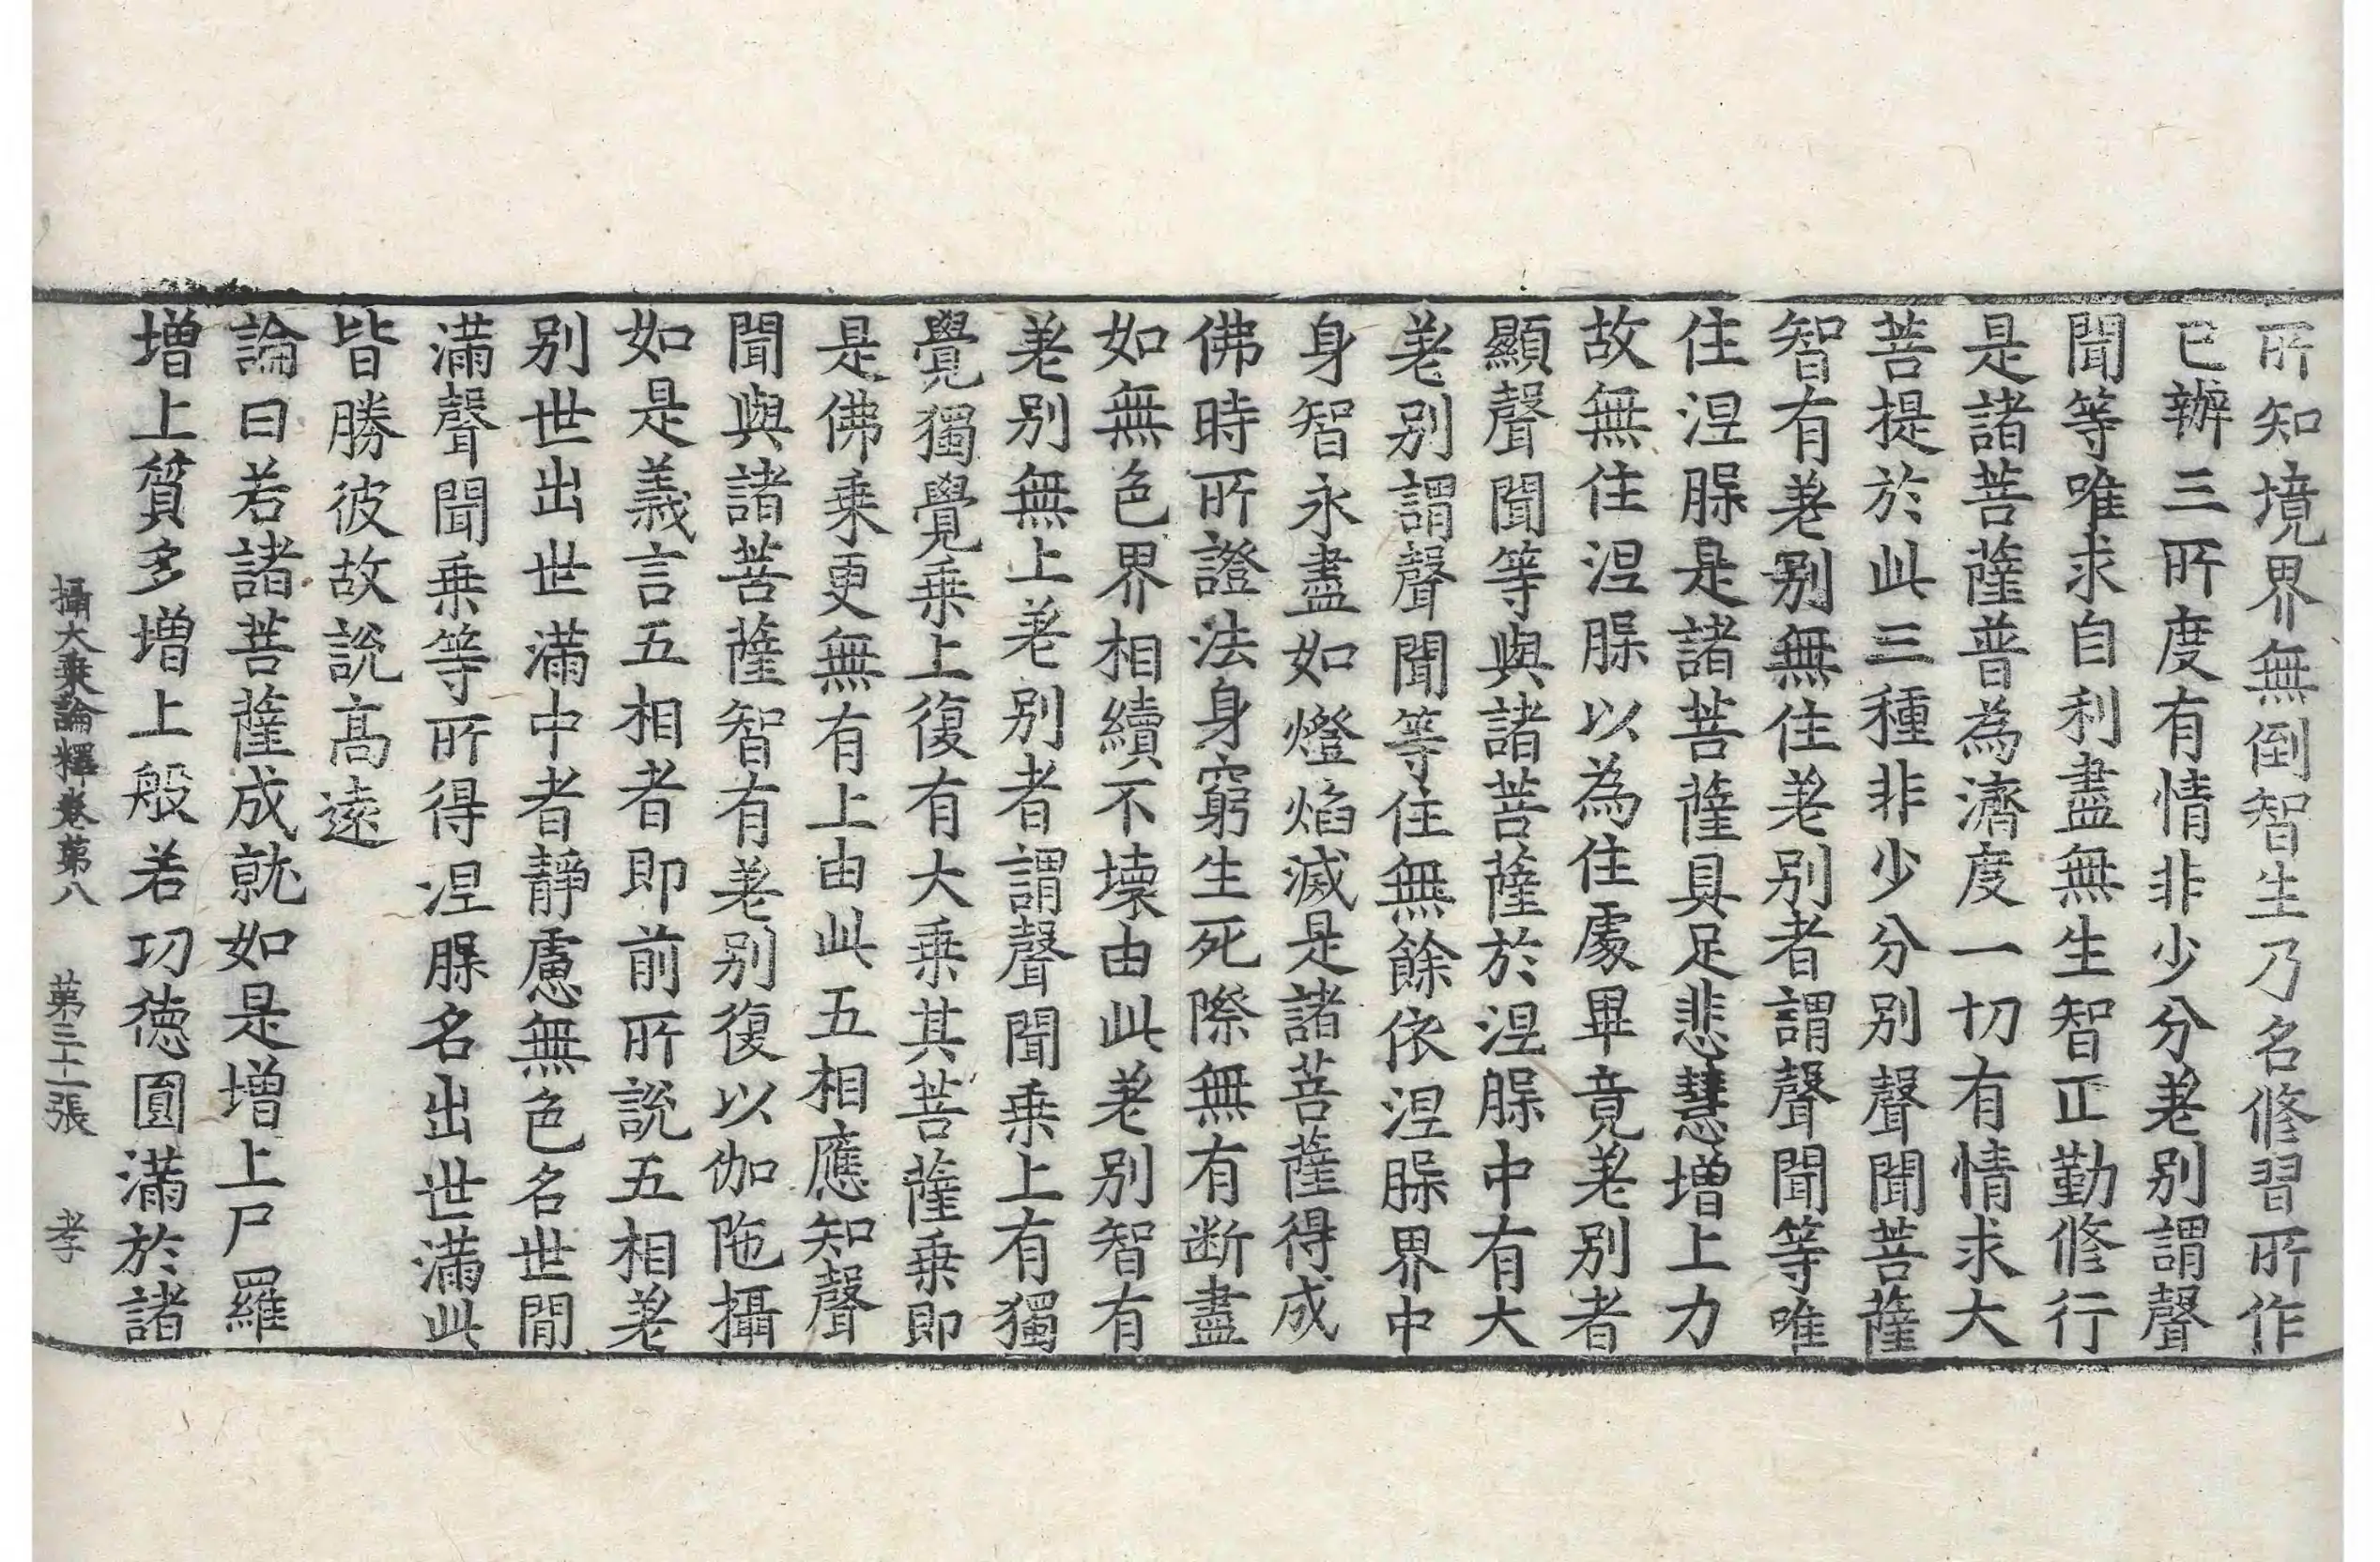 所知境界無倒智生乃名修習所作
已辦三所度有情非少分差別謂聲
聞等唯求自利盡無生智正勤修行
是諸菩薩普為濟度一切有情求大
菩提於此三種非少分別聲聞菩薩
智有差別無住差別者謂聲聞等唯
住涅槃是諸菩薩具足悲慧增上力
故無住涅槃以為住處畢竟差別者
顯聲聞等與諸菩薩於涅槃中有大
差別謂聲聞等住無餘依涅槃界中
身智永盡如燈焰滅是諸菩薩得成
佛時所證法身窮生死際無有断盡
如無色界相續不壞由此差別智有
差別無上差別者謂聲聞乗上有獨
覺獨覺乗上復有大乗其菩薩乗即
是佛乗更無有上由此五相應知聲
聞與諸菩薩智有差別復以伽陁攝
如是義言五相者即前所說五相差
別世出世滿中者靜慮無色名世間
滿聲聞乗等所得涅槃名出世滿此
皆勝彼故說高遠
論曰若諸菩薩成就如是增上尸羅
增上質多增上般若功德圓滿於諸
攝大乗論釋卷第八　第三十二張　孝